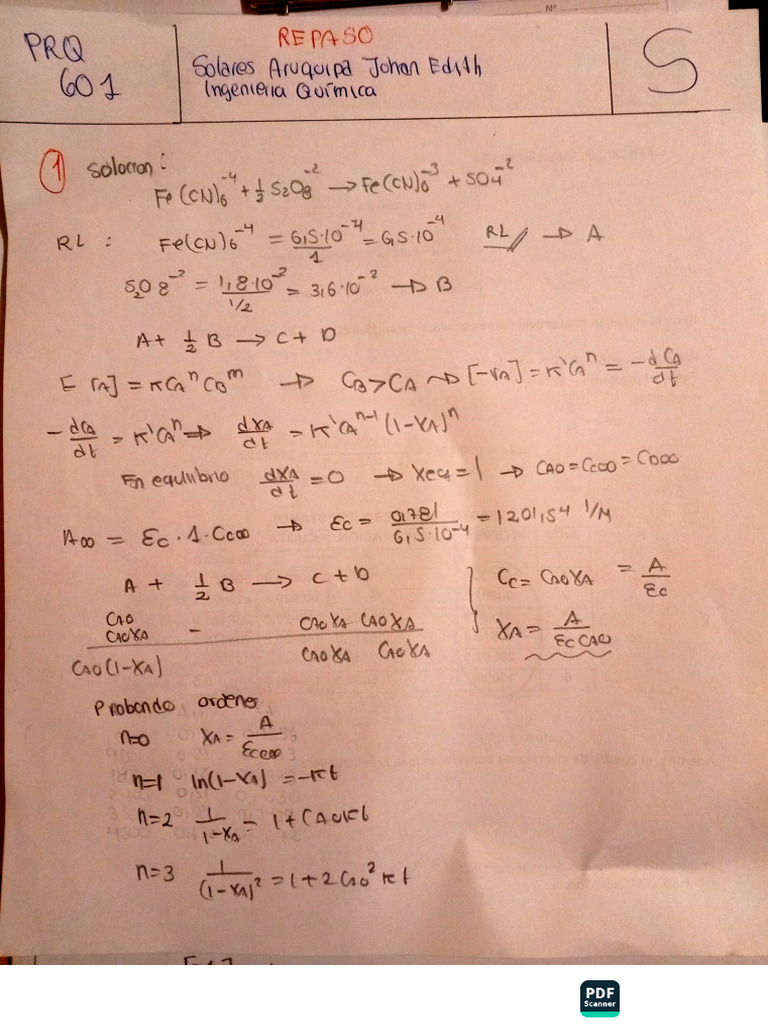 Nº
PRQ
601
REPASO
Solares Aruquipa Johan Edith
Ingenieria Química
S
① Solocion:
Fe(CN)6^-4 + 1/2 S2O8^-2 → Fe(CN)6^-3 + SO4^-2
RL : Fe(CN)6^-4 = 6,5·10^-4/1 = 6,5·10^-4 RL → A
S2O8^-2 = 1,8·10^-2/1/2 = 3,6·10^-2 → B
A + 1/2 B → C + D
[-rA] = K CA^n CB^m → CB > CA → [-rA] = K'CA^n = -dCA/dt
-dCA/dt = K'CA^n ⇒ dXA/dt = K'CA^n-1 (1-XA)^n
En equilibrio dXA/dt = 0 → Xeq = 1 → CAO = CC∞ = CD∞
A∞ = Ec · 1 · CC∞ → Ec = 0,781/6,5·10^-4 = 1201,54 1/M
A + 1/2 B → C + D
CAO
CAOXA – CAOXA CAOXA
CAO(1-XA) CAOXA CAOXA
CC = CAOXA = A/Ec
XA = A/Ec CAO
Probando ordenes
n=0 XA = A/Ec CAO
n=1 ln(1-XA) = -Kt
n=2 1/1-XA = 1 + CAOKt
n=3 1/(1-XA)^2 = 1 + 2CAO^2 Kt
PDF
Scanner